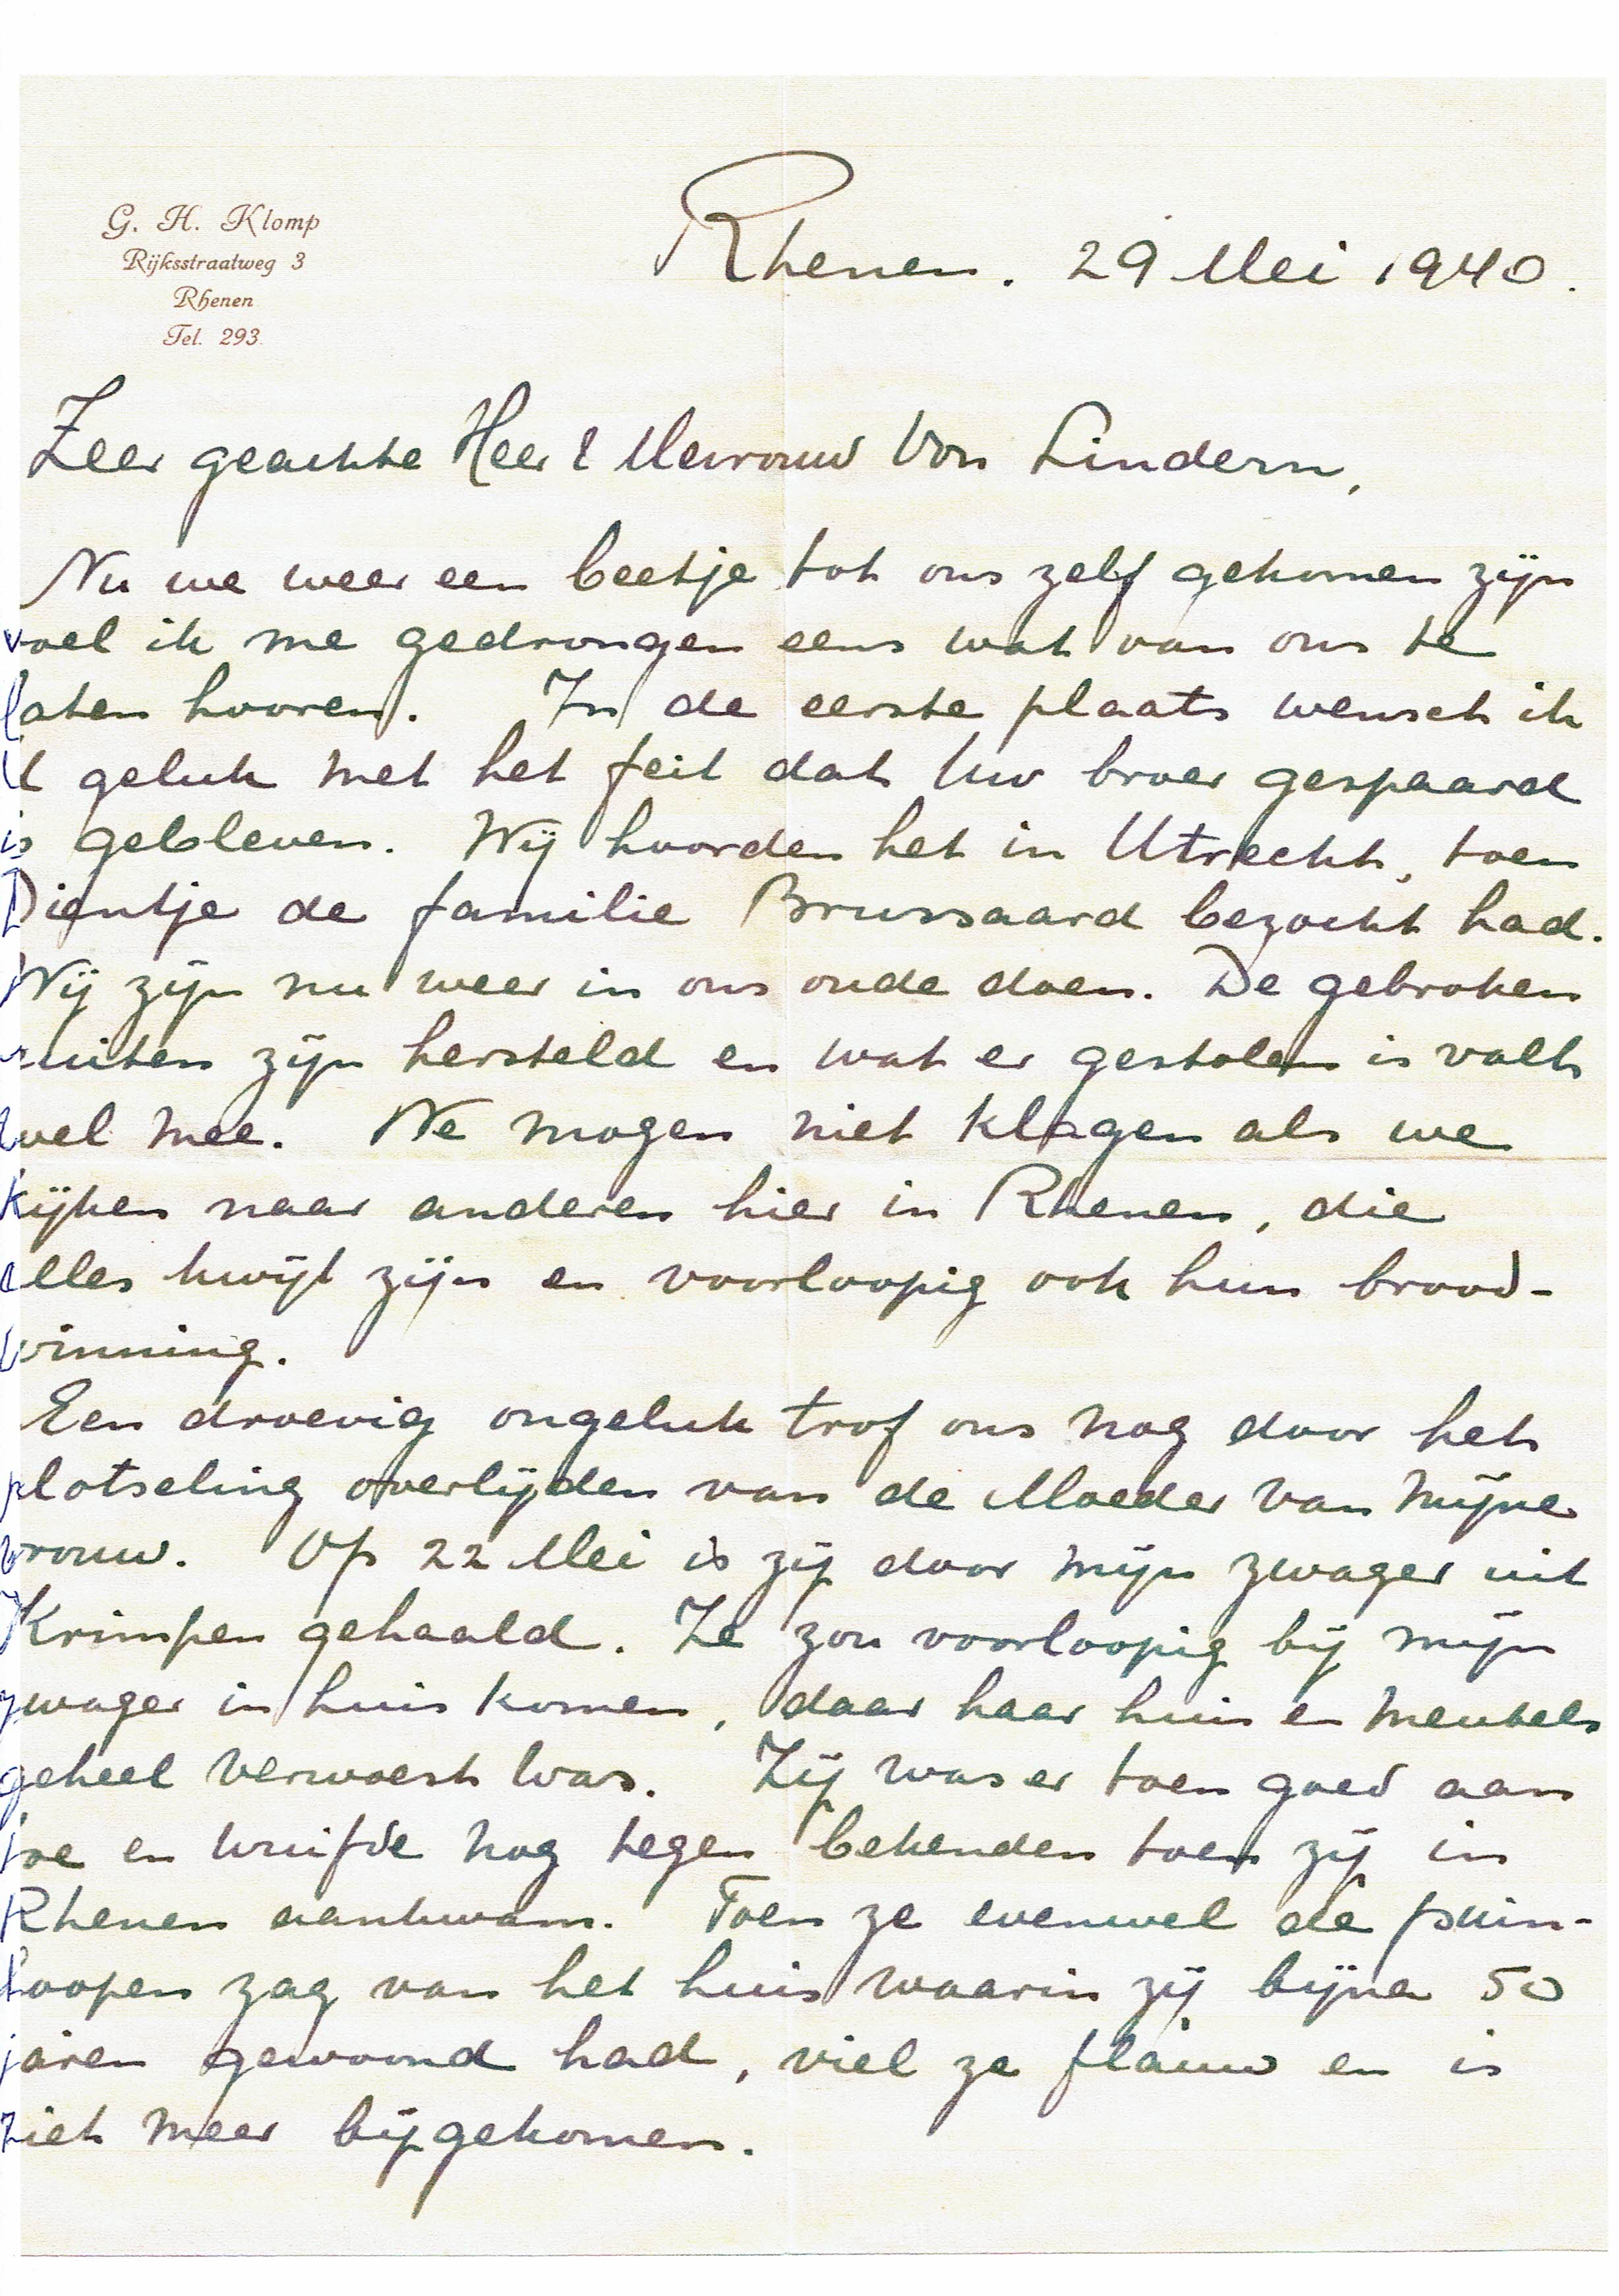 G. H. Klomp
Rijksstraatweg 3
Rhenen
Tel. 293.
Rhenen. 29 Mei 1940.
Zeer geachte Heer & Mevrouw Von Lindern,
Nu we weer een beetje tot ons zelf gekomen zijn
voel ik me gedrongen eens wat van ons te
laten hooren. In de eerste plaats wensch ik
U geluk met het feit dat Uw broer gespaard
is gebleven. Wij hoorden het in Utrecht, toen
Dientje de familie Brussaard bezocht had.
Wij zijn nu weer in ons oude doen. De gebroken
ruiten zijn hersteld en wat er gestolen is valt
wel mee. We mogen niet klagen als we
kijken naar anderen hier in Rhenen, die
alles kwijt zijn en voorloopig ook hun brood-
winning.
Een droevig ongeluk trof ons nog door het
plotseling overlijden van de Moeder van mijne
vrouw. Op 22 Mei is zij door mijn zwager uit
Krimpen gehaald. Ze zou voorloopig bij mijn
zwager in huis komen, daar haar huis en meubels
geheel verwoest was. Zij was er toen goed aan
toe en wuifde nog tegen bekenden toen zij in
Rhenen aankwam. Toen ze evenwel de puin-
hoopen zag van het huis waarin zij bijna 50
jaren gewoond had, viel ze flauw en is
niet meer bijgekomen.